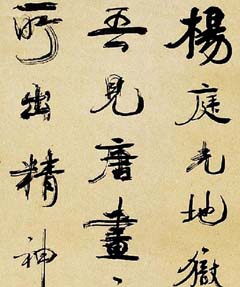 楊庭光地獄
吾見唐畫
所出精神